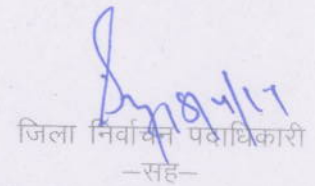 18/4/17
जिला निर्वाचन पदाधिकारी
—सह—